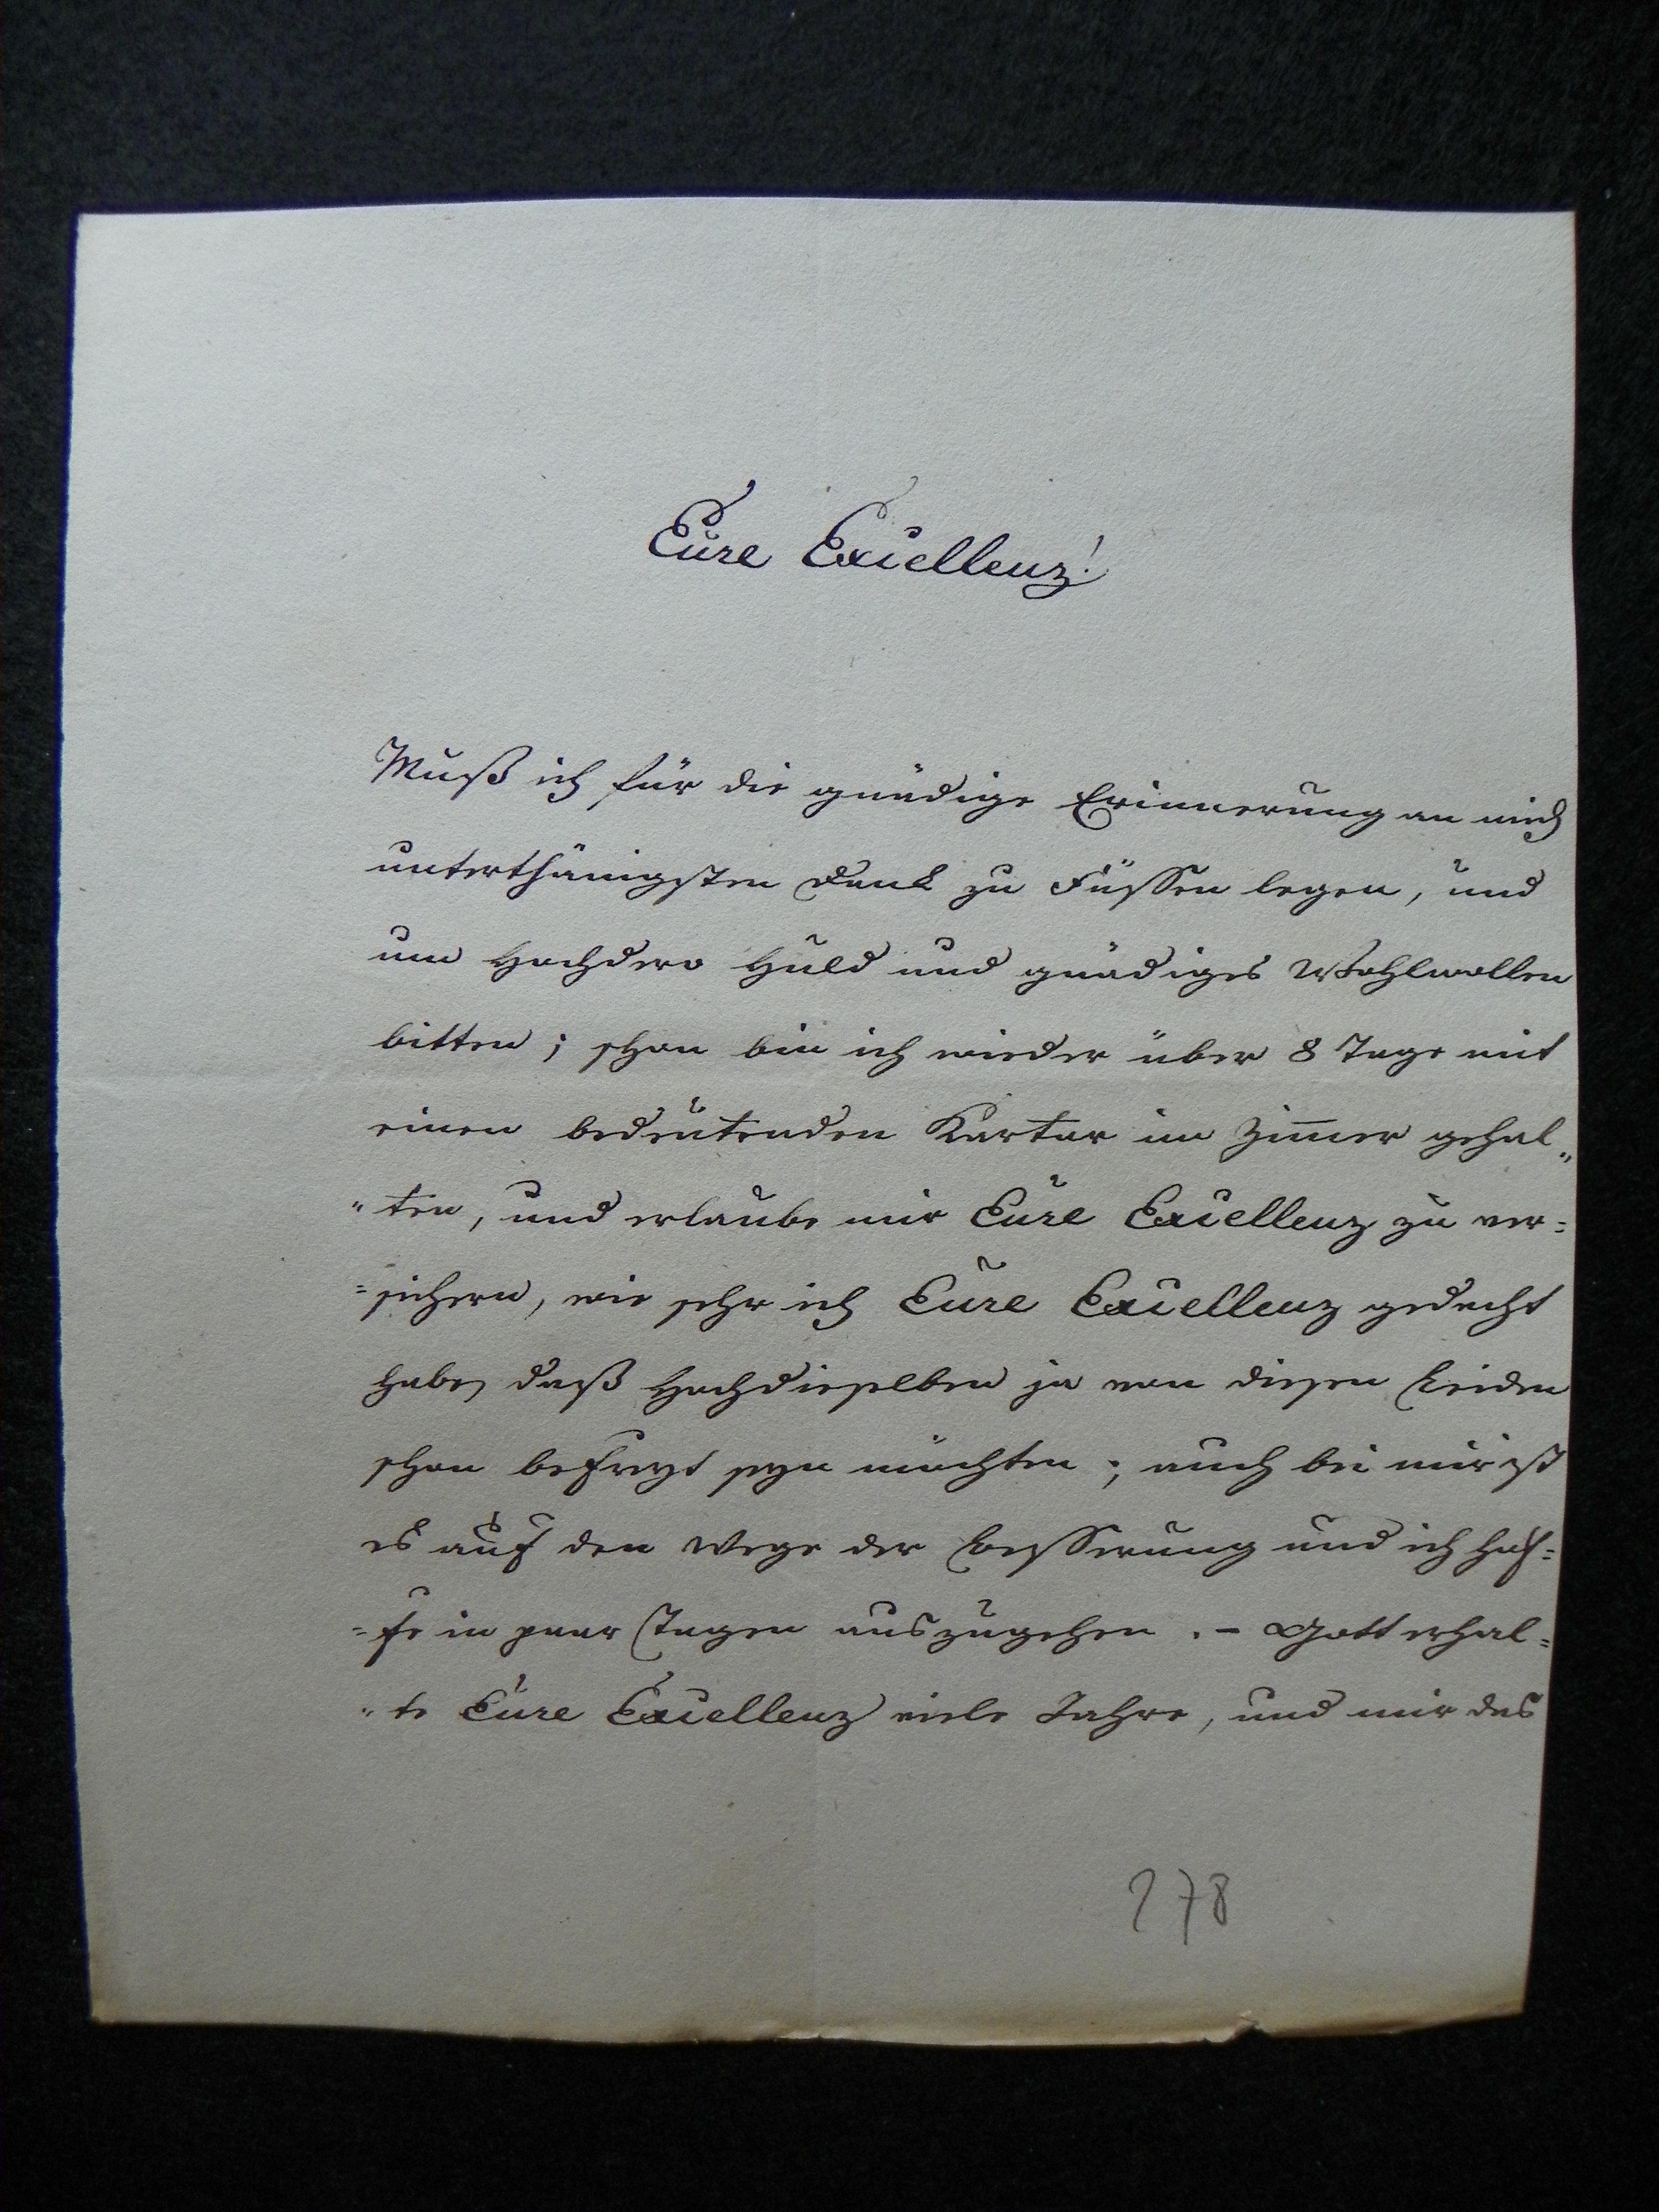 Eure Excellenz!
Muß ich für die gnädige Erinnerung an mich
unterthänigsten Dank zu Füssen legen, und
um Hochdero Huld und gnädiges Wohlwollen
bitten; schon bin ich wieder über 8 Tage mit
einen bedeutenden Kartar im Zimer gehal„
„ten, und erlaube mir Eure Excellenz zu ver=
=sichern, wie sehr ich Eure Excellenz gedacht
habe, daß Hochdieselben ja von diesen Leiden
schon befreyt seyn möchten; auch bei mir ist
es auf den Wege der Besserung und ich hof=
=fe in paar Tagen auszugehen. – Gott erhal=
„te Eure Excellenz viele Jahre, und mir das
278